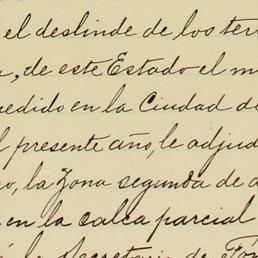 el deslinde de los ter
, de este Estado el m
edido en la Ciudad d
l presente año, le adjud
o, la Zona segunda de a
en en la calca parcial
la Secretaria de Fo